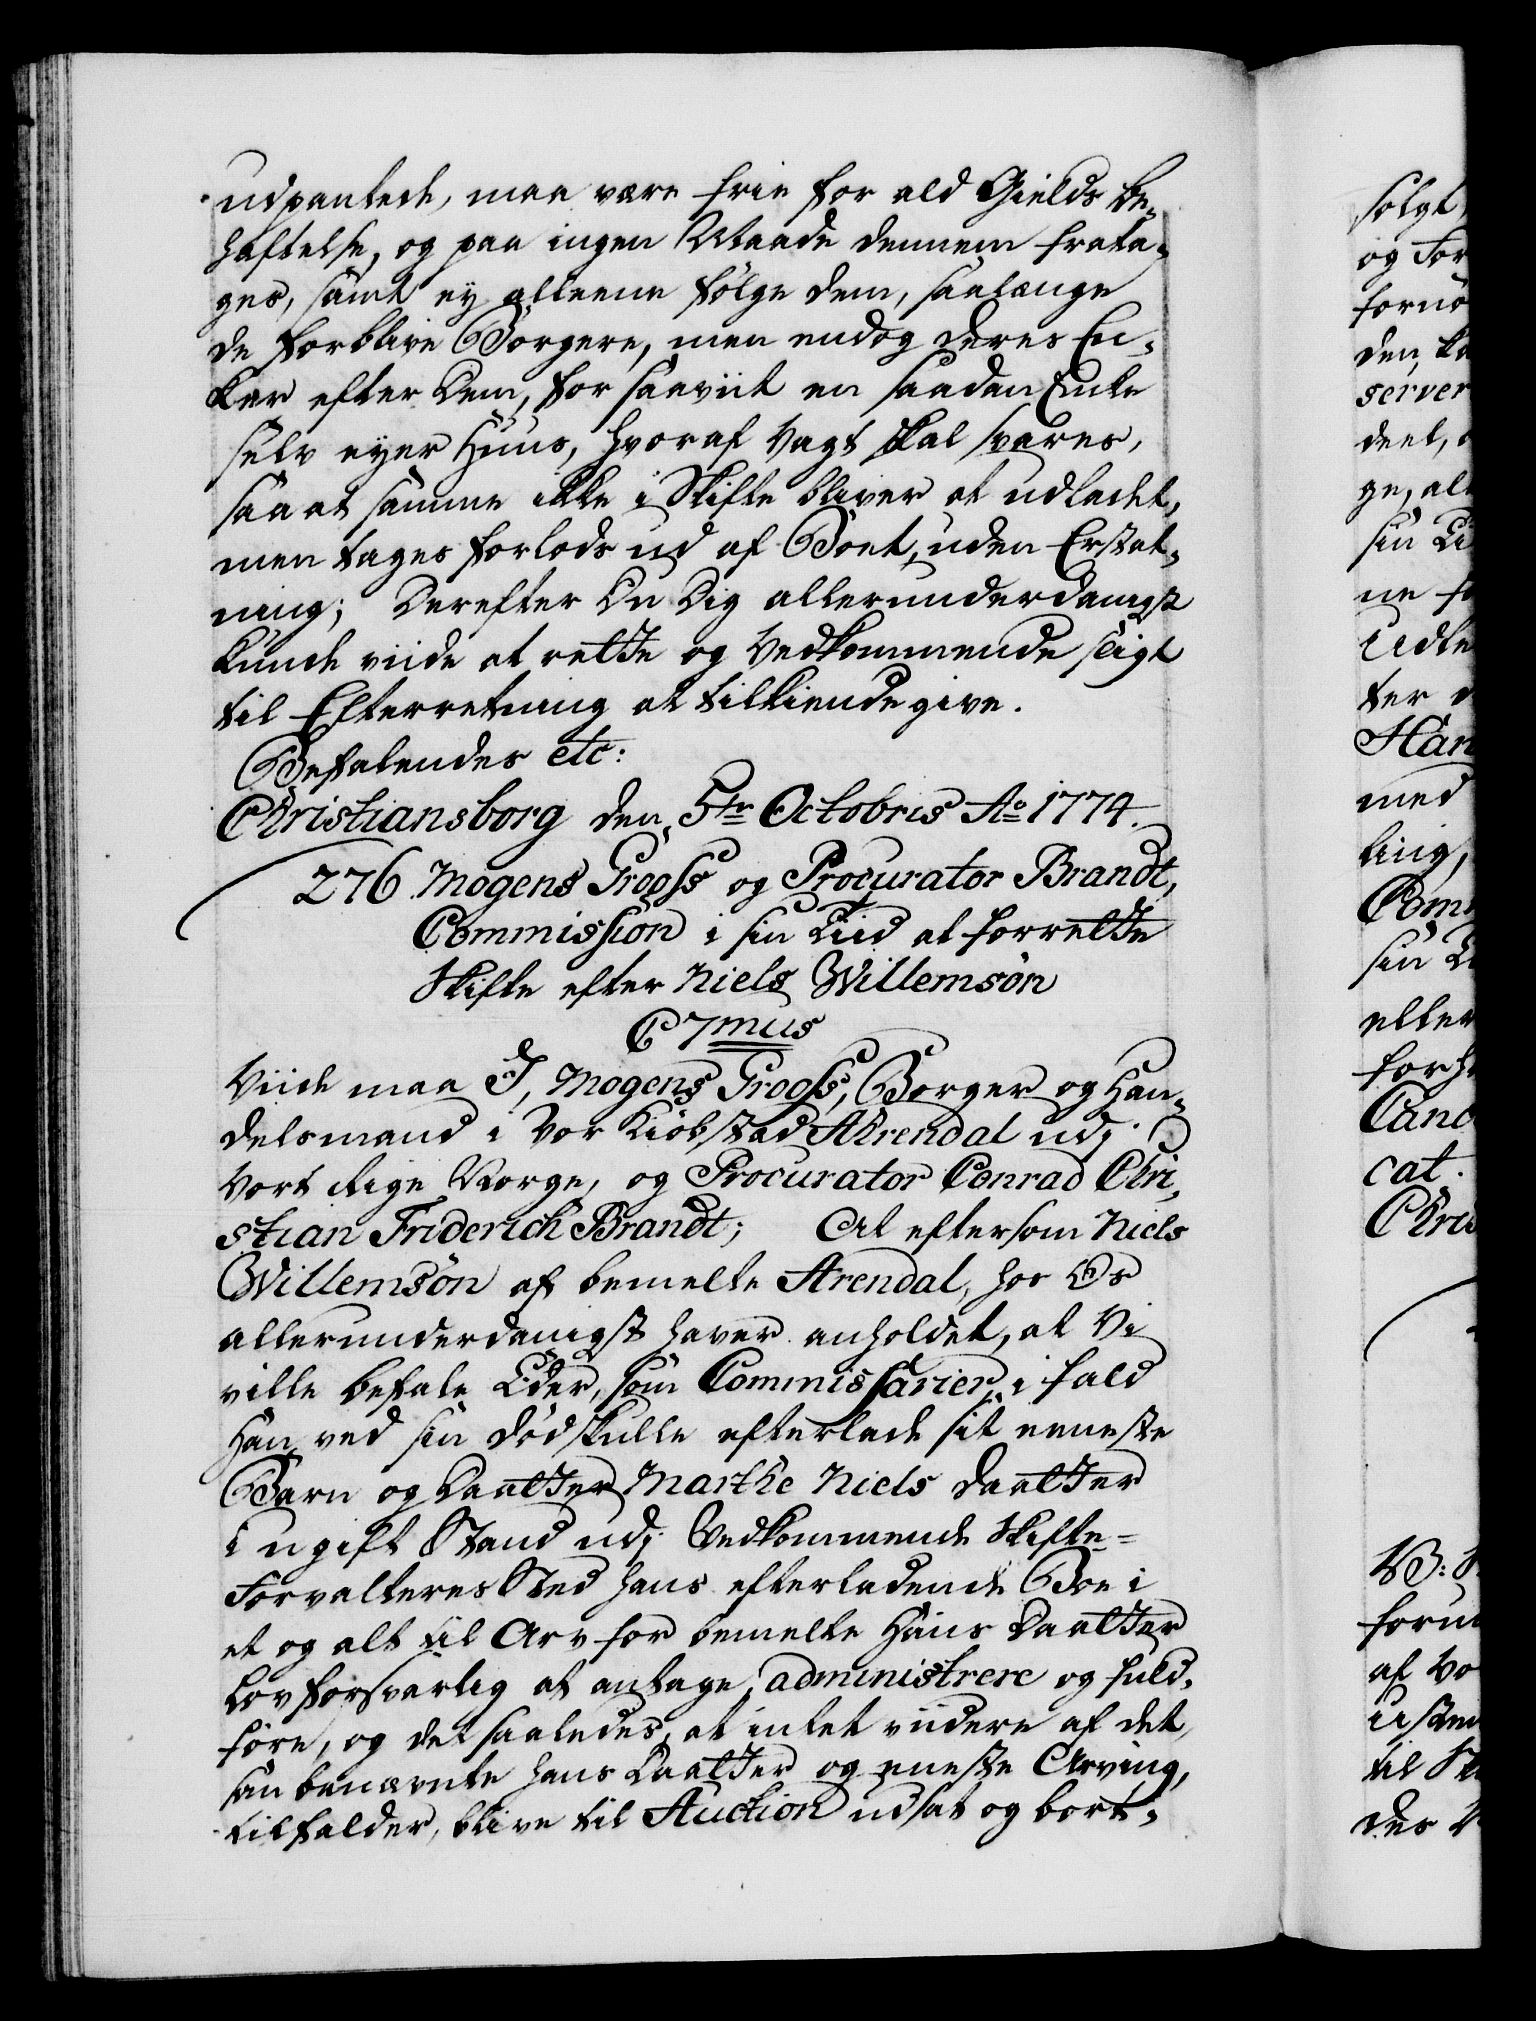 udpantede, maa være frie for ald Gields be-
hæftelse, og paa ingen Maade dennem frata-
ges, samt ey alleene følge dem, saalænge
de forblive Borgere, men endog deres En-
ker efter Dem, for saaviit en saadan Enke
selv eyer Huus, hvoraf Vagt skal svares,
saa at samme ikke i Skifte bliver at udladet,
men tages forlods ud af Boet, uden Erstat-
ning; Derefter Du Dig allerunderdanigst
kunde viide at rette og Vedkommende sligt
til Efterretning at tilkiende give.
Befalendes etc:
Christiansborg den 5te Octobris Ao 1774.
276. Mogens Grooss og Procurator Brandt,
Commission i sin Tiid at forrette
Skifte efter Niels Willemsøn
C 7mus
Viide maa I, Mogens Grooss, Borger og Han-
delsmand i Vor Kiøbstad Ahrendal udj
Vort Rige Norge, og Procurator Conrad Chri-
stian Friderich Brandt; At eftersom Niels
Willemsøn af bemelte Arendal, hos Os
allerunderdanigst haver anholdet, at Vi
ville befale Eder, som Commissarier, i fald
Han ved sin Død skulle efterlade sit eeneste
Barn og Daatter Marthe Niels Daatter
i ugift Stand udj Vedkommende Skifte-
Forvalteres Sted hans efterladende Boe i
et og alt til Arv for bemelte Hans Daatter
lovforsvarlig at antage, administrere og fuld-
føre, og det saaledes, at intet viidere af det,
saa benævnte hans Daatter og eneste Arving,
tilfalder, blive til Auction udsat og bort-
solgt,
og For
fornø
den, ka
server
deel,
ge, all
sin Ti
ne fo
Udle
ter
Han
med
ling,
Com
sin
eller
forh
Canc
cat.
Chris
forun
af Vo
til
des